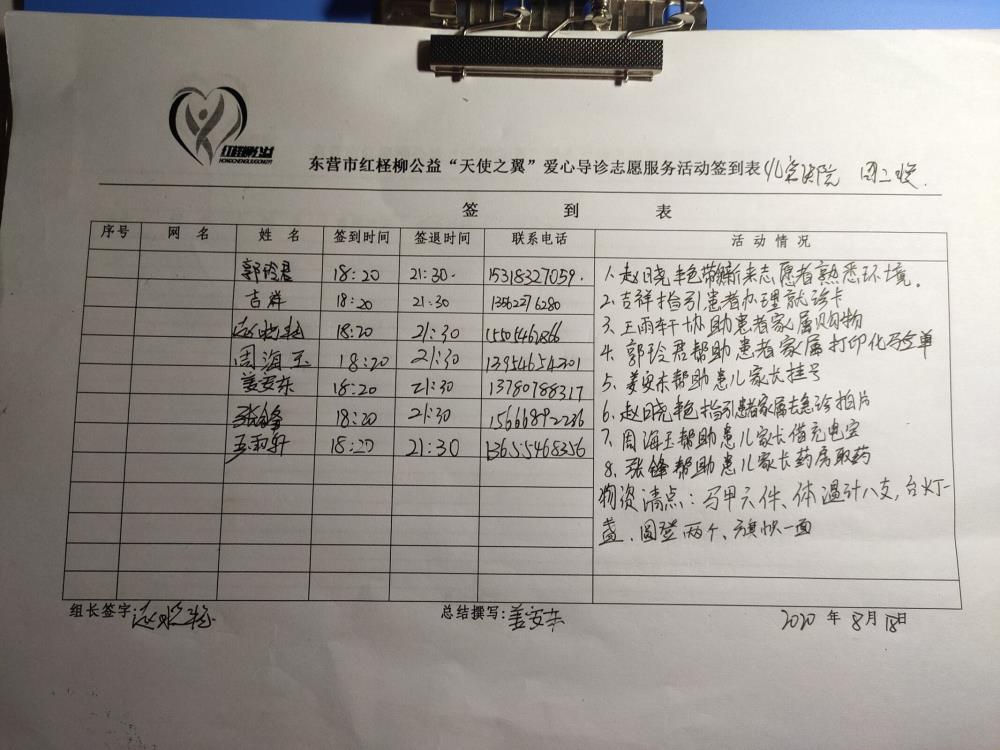 红柽柳公益
HONGCHENGLIUGONGYI
东营市红柽柳公益“天使之翼”爱心导诊志愿服务活动签到表 儿童医院 周二晚
签 到 表
序号 网名 姓名 签到时间 签退时间 联系电话 活动情况
郭玲君 18:20 21:30 15318327059
吉祥 18:20 21:30 13562276280
赵晓艳 18:20 21:30 15505462866
周海玉 18:20 21:30 13954654301
姜安东 18:20 21:30 13780788317
张锋 18:20 21:30 15666892286
王雨轩 18:20 21:30 13655468356
1、赵晓艳带领新来志愿者熟悉环境。
2、吉祥指引患者办理就诊卡
3、王雨轩协助患者家属购物
4、郭玲君帮助患者家属打印化验单
5、姜安东帮助患儿家长挂号
6、赵晓艳指引患者家属去急诊拍片
7、周海玉帮助患儿家长借充电宝
8、张锋帮助患儿家长药房取药
物资清点：马甲六件、体温计八支，台灯一
盏、圆登两个、旗帜一面
组长签字:赵晓艳 总结撰写:姜安东 2020 年 8 月 18 日